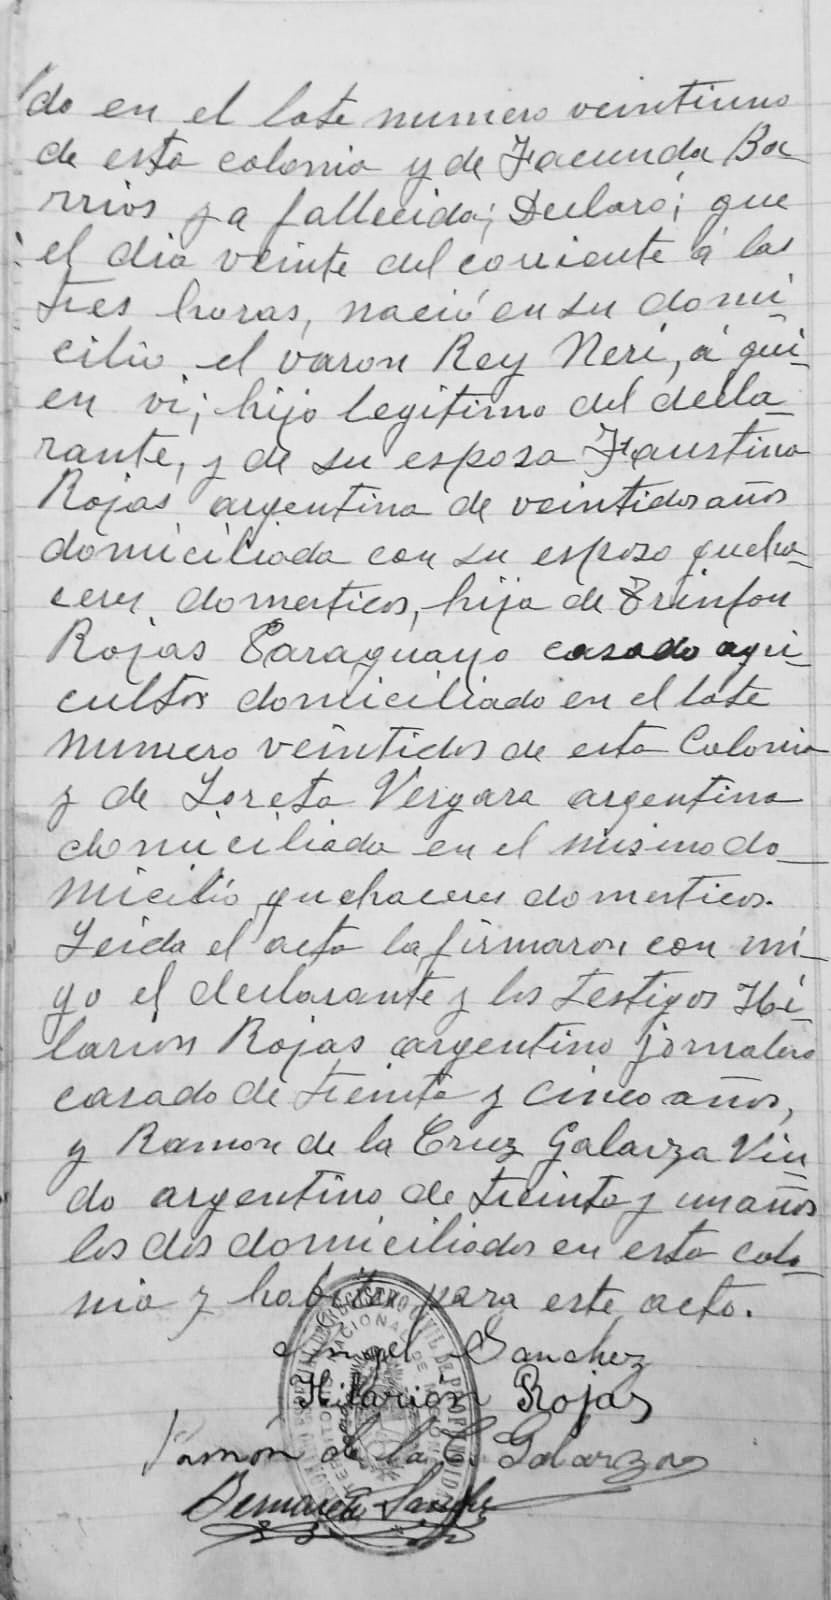 do en el lote numero veintiuno
de esta colonia y de Facunda Ba
rrios ya fallecida; Declaró; que
el dia veinte del corriente á las
tres horas, nació en su domi
cilio el varon Rey Neri, á qui-
en vi; hijo legitimo del decla-
rante, y de su esposa Faustina
Rojas argentina de veintidos años
domiciliada con su esposo queha-
ceres domesticos, hija de Trinfon
Rojas Paraguayo casado agri-
cultor domiciliado en el lote
numero veintidos de esta Colonia
y de Loreta Vergara argentina
domiciliada en el mismo do-
micilio quehaceres domesticos.
Leida el acta la firmaron con mi-
go el declarante y los testigos Hi-
larion Rojas argentino jornalero
casado de treinta y cinco años,
y Ramon de la Cruz Galarza Viu-
do argentino de treinta y un años
los dos domiciliados en esta colo-
nia y habiles para este acto.
Angel Sanchez
Hilarión Rojas
Ramón de la C. Galarza
REGISTRO CIVIL DE
NACIONAL DE